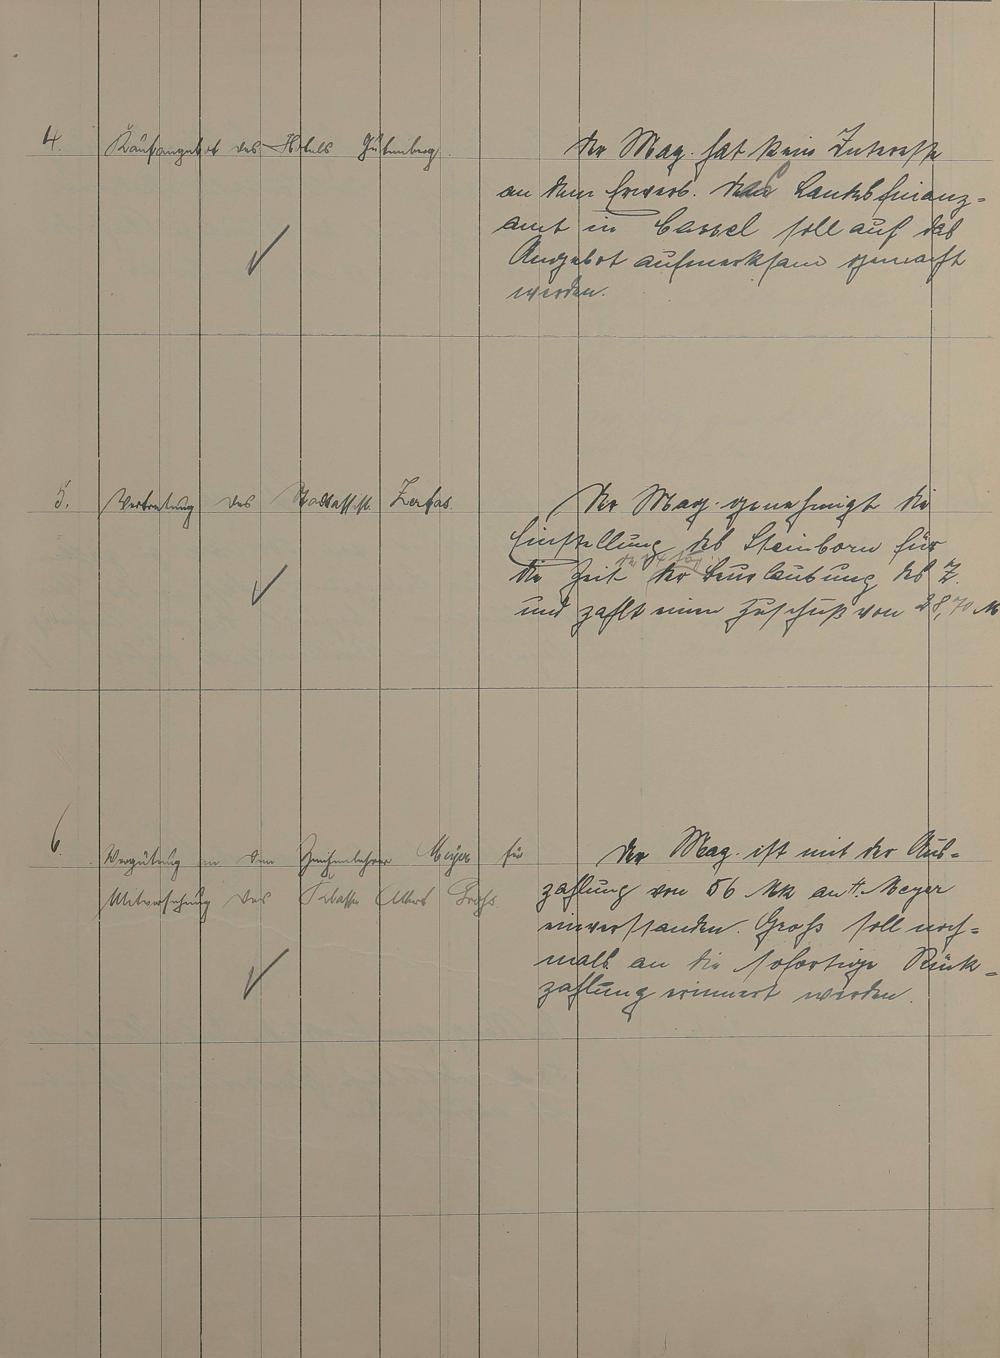 4. Kaufangebot des Hotels Gutenberg.
Der Mag. hat kein Interesse
an dem Erwerb. Das Landesfinanz-
amt in Cassel soll auf das
Angebot aufmerksam gemacht
werden.
5. Vertretung des Stadtassist. Zahas.
Der Mag. genehmigt die
Einstellung des Steinborn für
die Zeit der Beurlaubung des Z.
und zahlt einen Zuschuß von 28,70 M
6. Vergütung an den Zeichenlehrer Meyer für
Mitversehung des Albert Groß.
Der Mag. ist mit der Aus-
zahlung von 56 Mk an H. Meyer
einverstanden. Groß soll noch-
mals an die sofortige Rück-
zahlung erinnert werden.